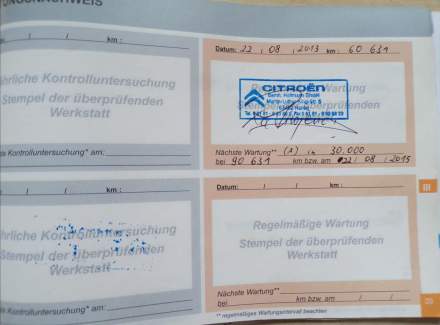 km :
hrliche Kontrolluntersuchung
Stempel der überprüfenden
Werkstatt
te Kontrolluntersuchung* am:
km :
hrliche Kontrolluntersuchung
Stempel der überprüfenden
Werkstatt
Kontrolluntersuchung* am:
Datum: 22 / 08 / 2013 km : 60 631
Wartung
CITROËN
Nächste Wartung** (A) in 30.000
bei 90 631 km bzw. am 22 / 08 / 2015
Datum: / / km :
Regelmäßige Wartung
Stempel der überprüfenden
Werkstatt
Nächste Wartung**
bei km bzw. am / /
** regelmäßiges Wartungsintervall beachten
III